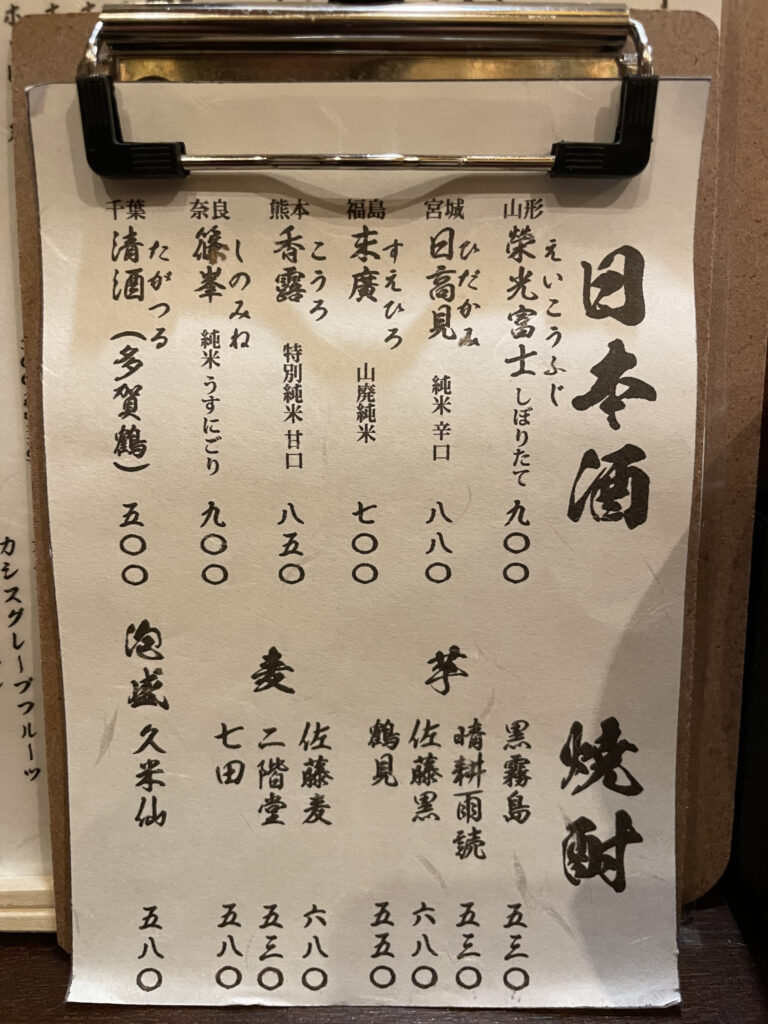 日本酒
山形
榮光富士 しぼりたて 九〇〇
えいこうふじ
宮城
日高見 純米 辛口 八八〇
ひだかみ
福島
末廣 山廃純米 七〇〇
すえひろ
熊本
香露 特別純米 甘口 八五〇
こうろ
奈良
篠峯 純米 うすにごり 九〇〇
しのみね
千葉
清酒(多賀鶴) 五〇〇
たがつる
焼酎
芋
黒霧島 五三〇
晴耕雨読 五三〇
佐藤黒 六八〇
鶴見 五五〇
麦
佐藤麦 六八〇
二階堂 五三〇
七田 五八〇
泡盛
久米仙 五八〇
カシスグレープフルーツ